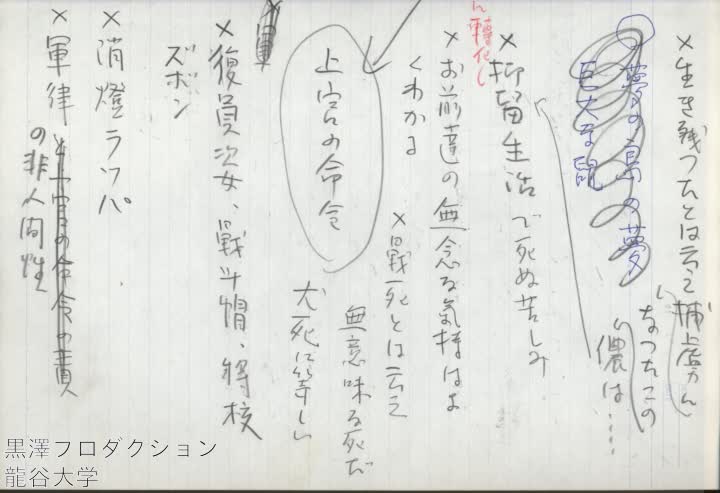 ×生き残つたとは云え捕虜に
なつたこの
儂は……
夢の島の夢
巨大な鼠
に轉化し
×抑留生活で死ぬ苦しみ
×お前達の無念な気持はよ
くわかる
×戰死とは云え
無意味な死だ
犬死に等しい
上官の命令
×復員次女、戰斗帽、將校
ズボン
×消燈ラッパ
×軍律と上官の命令の責
の非人間性
黒澤プロダクション
龍谷大学